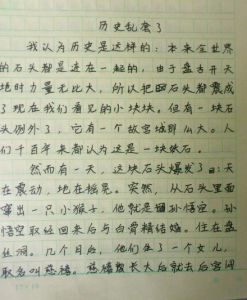 历史乱套了
我认为历史是这样的：本来全世界
的石头都是连在一起的，由于盘古开天
地时力量无比大，所以把石头都震成
了现在我们看见的小块块。但有一块石
头例外了，它有一个故宫城那么大。人
们千百年来都认为这是一块炼石。
然而有一天，这块石头爆发了：天
在震动，地在摇晃。突然，从石头里面
窜出一只小猴子，他就是孙悟空。孙
悟空取经回来后与白骨精结婚。住在盘
丝洞。几个月后，他们生了一个女儿，
取名叫慈禧。慈禧长大后就去后宫闯